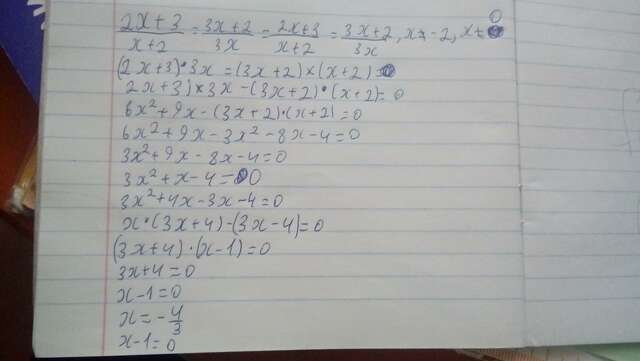 (2x+3)/(x+2) = (3x+2)/(3x) = (2x+3)/(x+2) = (3x+2)/(3x), x≠-2, x≠0
(2x+3)·3x=(3x+2)×(x+2)
2x+3)×3x-(3x+2)·(x+2)=0
6x²+9x-(3x+2)·(x+2)=0
6x²+9x-3x²-8x-4=0
3x²+9x-8x-4=0
3x²+x-4=0
3x²+4x-3x-4=0
x·(3x+4)-(3x-4)=0
(3x+4)·(x-1)=0
3x+4=0
x-1=0
x=-4/3
x-1=0